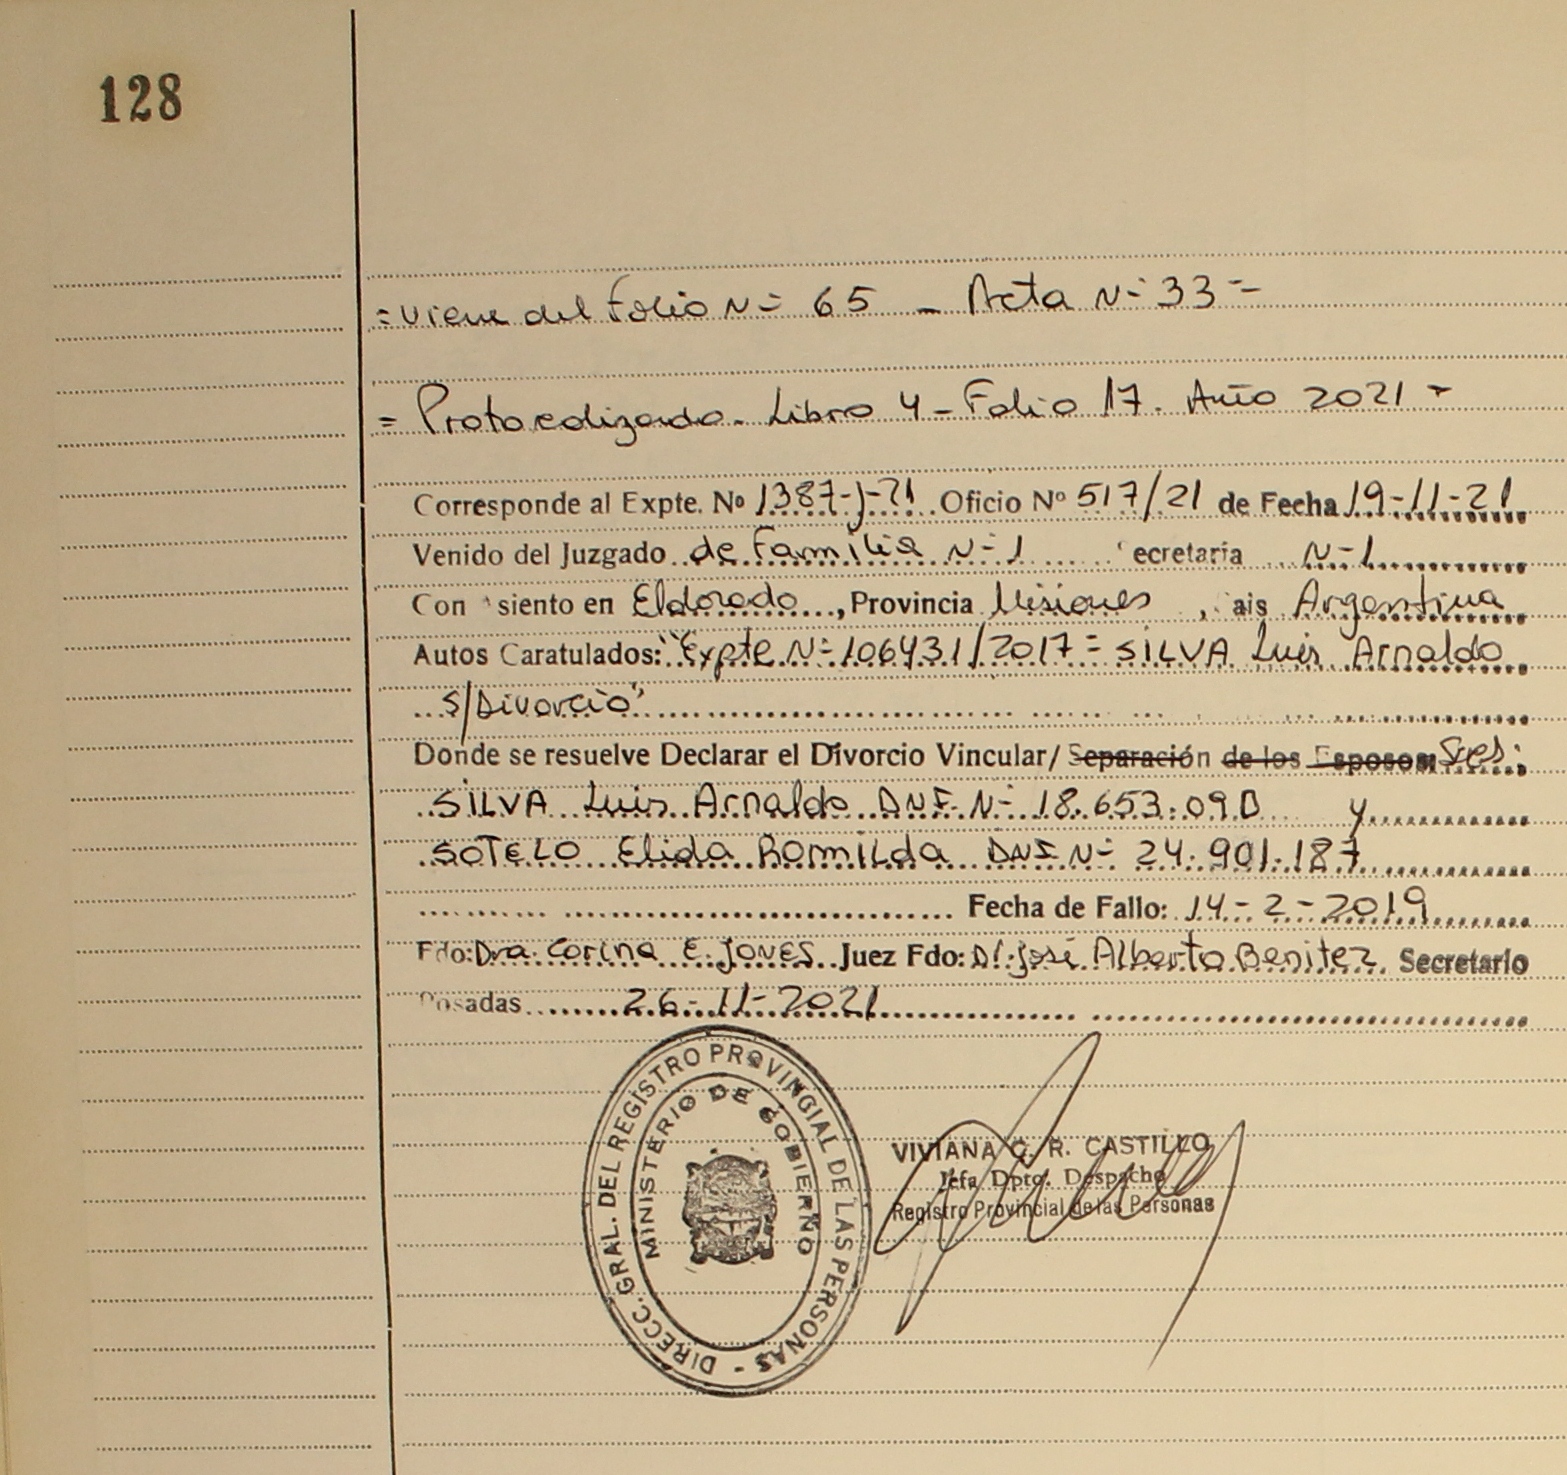 128
= Viene del Folio Nº 65 - Acta Nº 33 =
= Protocolizado. Libro 4 - Folio 17. Año 2021 =
Corresponde al Expte. Nº 1387-J-21 Oficio Nº 517/21 de Fecha 19-11-21
Venido del Juzgado de Familia Nº 1 ecretaria Nº 1
Con siento en Eldorado, Provincia Misiones, ais Argentina
Autos Caratulados: "Expte Nº 106431/2017 = SILVA Luis Arnaldo
S/Divorcio"
Donde se resuelve Declarar el Divorcio Vincular/ Separación de los Esposos Sres:
SILVA Luis Arnaldo DNI Nº 18.653.090 y
SOTELO Elida Romilda DNI Nº 24.901.187
Fecha de Fallo: 14-2-2019
Fdo: Dra. Corina E. Jones Juez Fdo: Dr. José Alberto Benitez Secretario
Posadas 26-11-2021
DIRECC. GRAL. DEL REGISTRO PROVINCIAL DE LAS PERSONAS -
MINISTERIO DE GOBIERNO
VIVIANA G. R. CASTILLO
Jefa Dpto. Despacho
Registro Provincial de las Personas